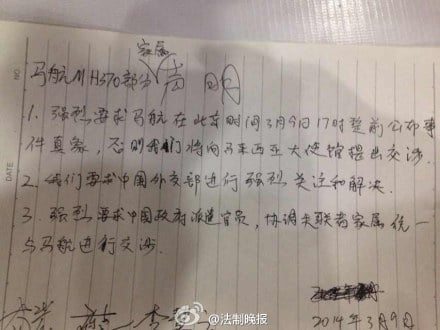 NO
DATE
家属
马航MH370部分声明
1. 强烈要求马航在北京时间3月9日17时整前公布事
件真象,否则我们将向马来西亚大使馆提出交涉.
2. 我们要求中国外交部进行强烈关注和解决.
3. 强烈要求中国政府派遣官员,协调失联者家属统一
与马航进行交涉.
2014年3月9日
@法制晚报